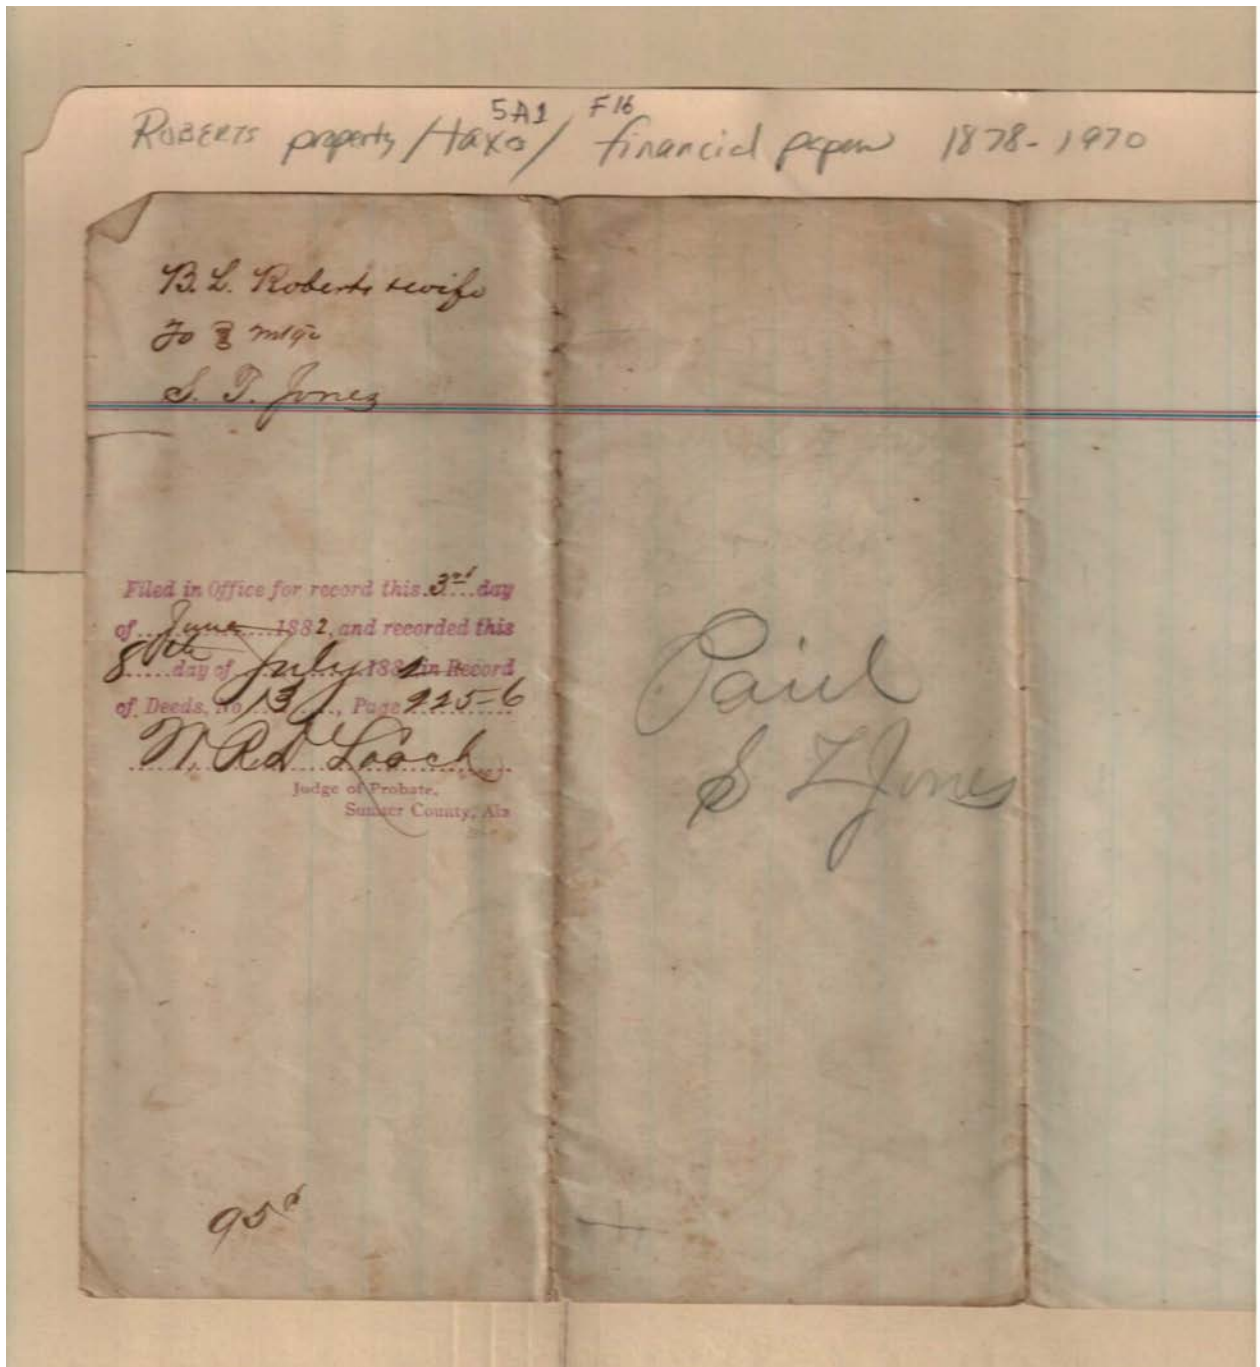 5A1 F16
ROBERTS property/taxes/financial papers 1878-1970
B. L. Roberts & wife
To } Mtge
S. T. Jones
Filed in Office for record this 3rd day
of June 1882, and recorded this
8th day of July 1882 in Record
of Deeds, No 13, Page 225-6
Judge of Probate,
Sumter County, Ala
95¢
Paid
S T Jones